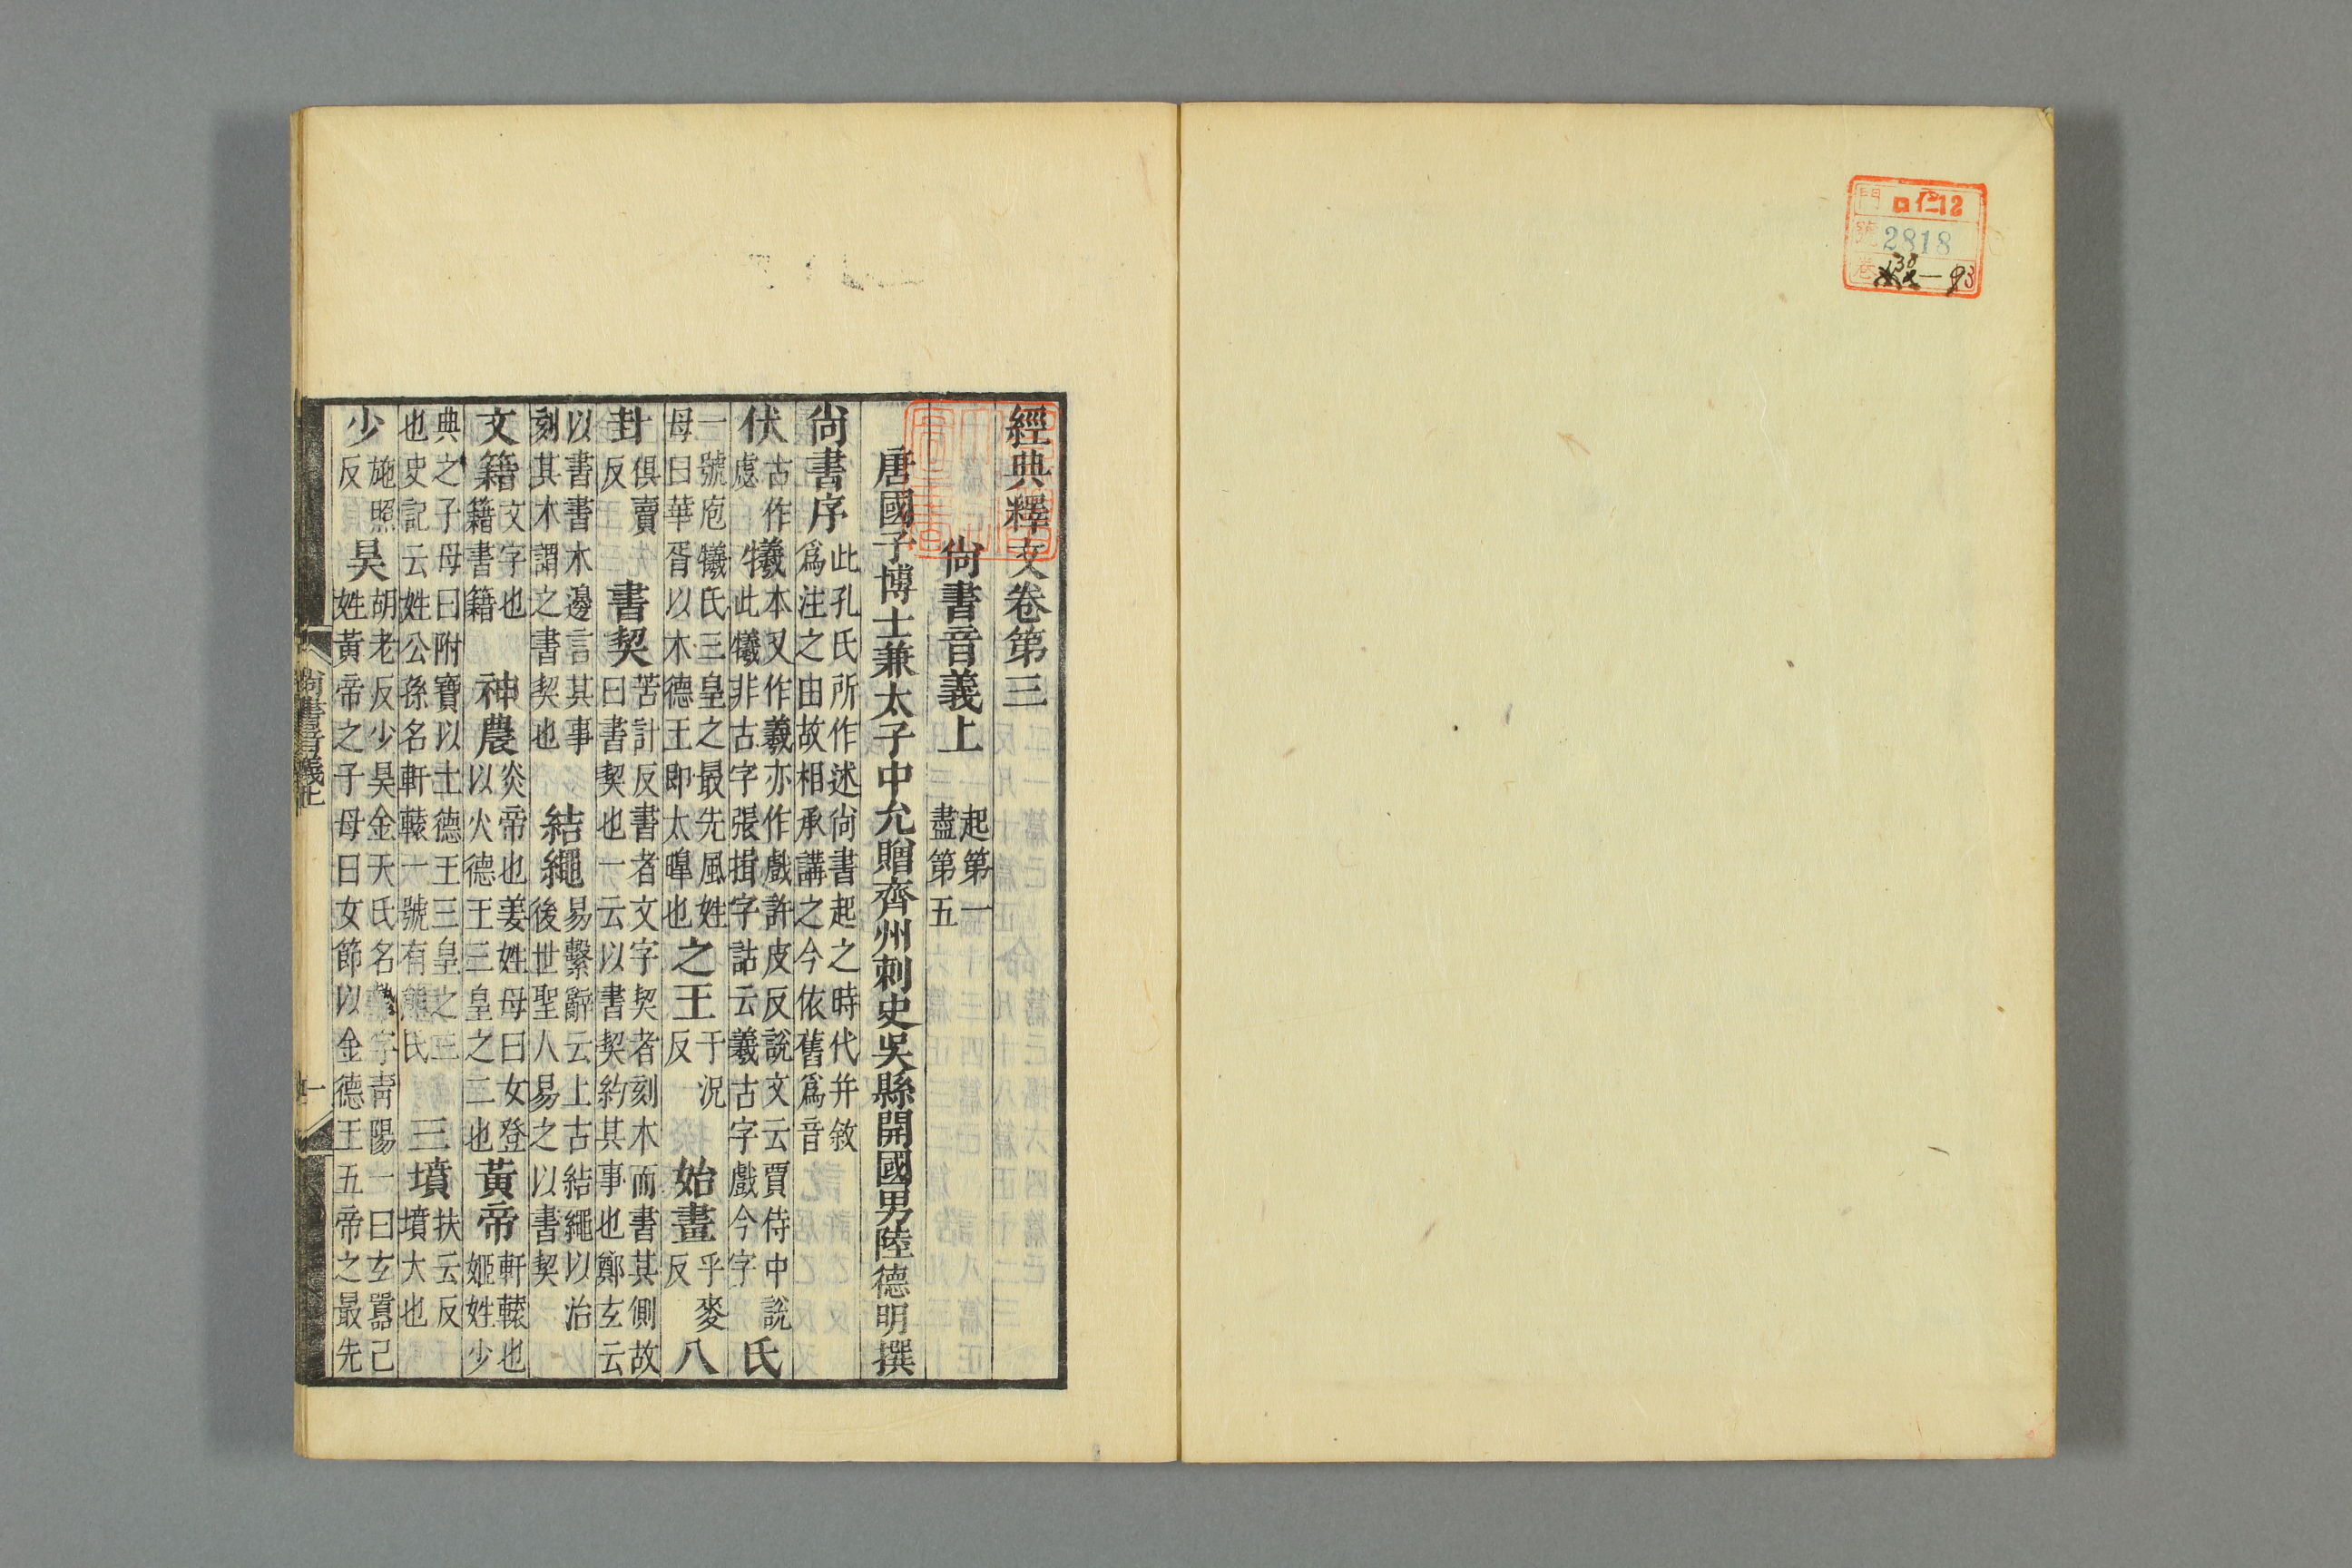 門 ロ仁12
號 2818
卷 — 93
經典釋文卷第三
尙書音義上 起第一盡第五
唐國子博士兼太子中允贈齊州刺史吳縣開國男陸德明撰
尙書序 此孔氏所作述尙書起之時代并敘爲注之由故相承講之今依舊爲音
伏 古作虙 犧 本又作羲亦作戲許皮反說文云賈侍中說此犧非古字張揖字詁云羲古字戲今字 氏
一號庖犧氏三皇之最先風姓母曰華胥以木德王即太皡也 之王 于況反 始畫 乎麥反 八
卦 俱賣反 書契 苦計反書者文字契者刻木而書其側故曰書契也一云以書契約其事也鄭玄云
以書書木邊言其事刻其木謂之書契也 結繩 易繫辭云上古結繩以治後世聖人易之以書契
文籍 文文字也籍書籍 神農 炎帝也姜姓母曰女登以火德王三皇之二也 黃帝 軒轅也姬姓少
典之子母曰附寶以土德王三皇之三也史記云姓公孫名軒轅一號有熊氏 三墳 扶云反墳大也
少 施照反 昊 胡老反少昊金天氏名字靑陽一曰玄囂己姓黃帝之子母曰女節以金德王五帝之最先
尙書音義上 一